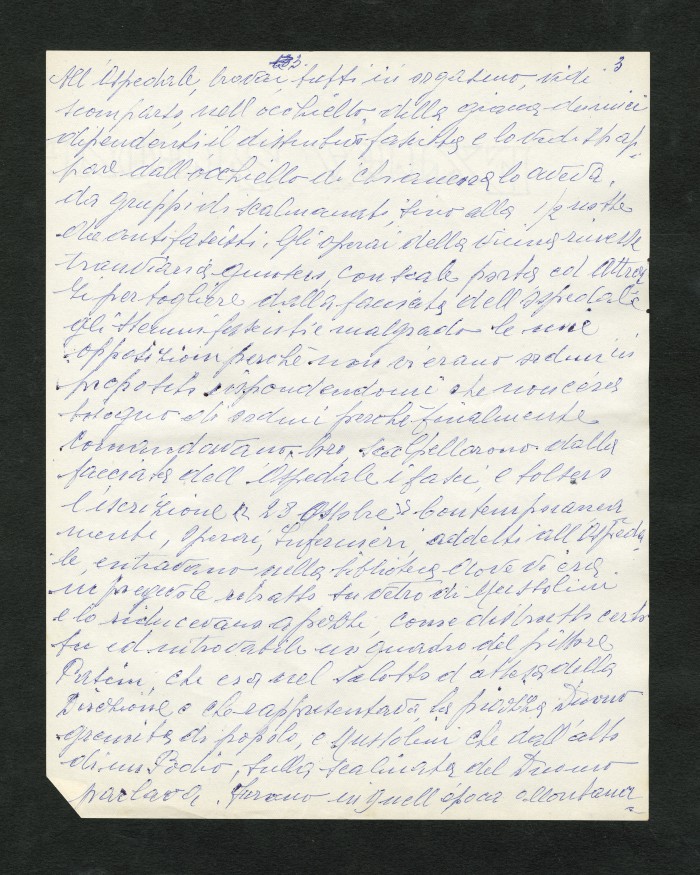 3
All'Ospedale, trovai tutti in orgasmo, vidi
scomparso nell'occhiello della giacca dei miei
dipendenti il distintivo fascista e lo vidi strap-
pare dall'occhiello di chi ancora lo aveva,
da gruppi di scalmanati, fino alla 1/2 notte
antifascisti. Gli operai della vicina rimessa
tranviaria giunsero, con scale porta ed attrez
zi per togliere dalla facciata dell'Ospedale
gli stemmi fascisti e malgrado le mie
opposizioni perchè non vi erano ordini in
proposito rispondendomi che non c'era
bisogno di ordini perchè finalmente
comandavano loro scalpellarono dalla
facciata dell'Ospedale i fasci, e tolsero
l'iscrizione "28 Ottobre". Contemporanea
mente, Operai, Infermieri, addetti all'Ospeda
le, entravano nella biblioteca dove vi era
un pregevole ritratto su vetro di Mussolini
e lo riducevano a pezzi, come distrutto certo
fu ed introvabile un quadro del pittore
che era nel salotto d'attesa della
Direzione e che rappresentava la piazza Duomo
gremita di popolo, e Mussolini che dall'alto
di un Podio, sulla scalinata del Duomo
parlava. Furono in quell'epoca allontana